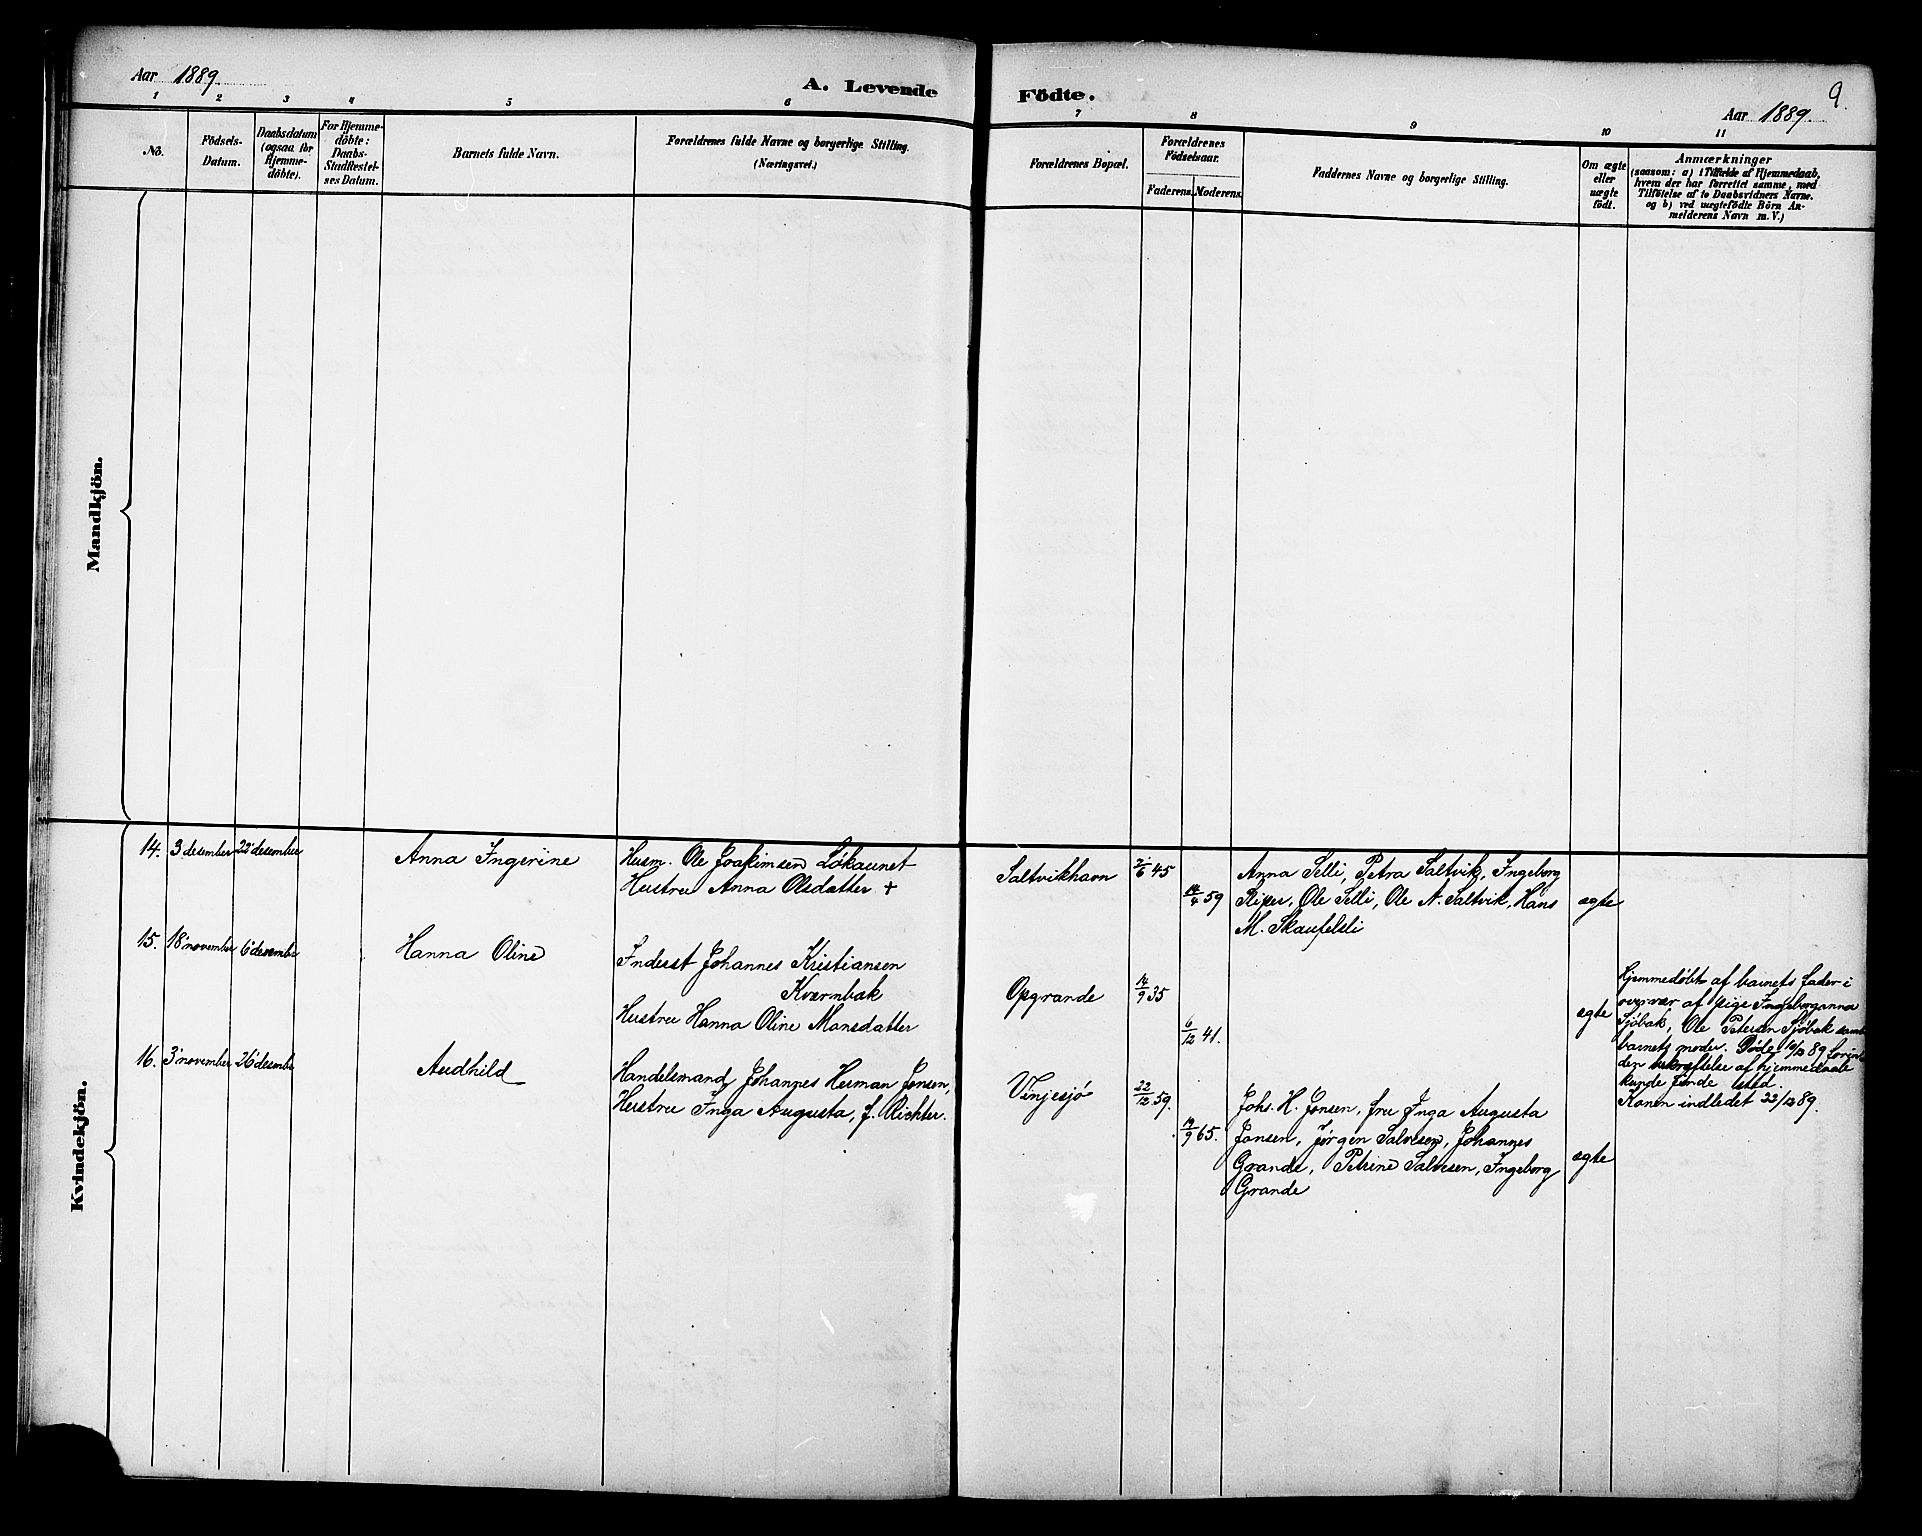 Aar 1889.
A. Levende Födte.
9.
Aar 1889.
1 2 3 4 5 6 7 8 9 10 11
No.
Födsels-
Datum.
Daabsdatum
(ogsaa for
Hjemme-
döbte).
For Hjemme-
döbte:
Daabs-
Stadfæstel-
ses Datum.
Barnets fulde Navn.
Forældrenes fulde Navne og borgerlige Stilling.
(Næringsvei.)
Forældrenes Bopæl.
Forældrenes
Födselsaar.
Faderens. Moderens.
Faddernes Navne og borgerlige Stilling.
Om ægte
eller
uægte
födt.
Anmærkninger
(saasom: a) i Tilfælde af Hjemmedaab,
hvem der har forrettet samme, med
Tilföielse af to Daabsvidners Navne.
og b) ved uægtefödte Börn An-
melderens Navn m. V.)
Mandkjön.
Kvindekjön.
14. 3 desember 22 desember
Anna Ingerine
Husm. Ole Joakimsen Løkaunet
Hustru Anna Olsdatter +
Saltvikhavn
2/6 45
14/4 59
Anna Selli, Petra Saltvik, Ingeborg
Ole Selli, Ole N. Saltvik, Hans
M. Skaufelsli
ægte
15. 18 november 6 desember
Hanna Oline
Inderst Johannes Kristiansen
Kvernbak
Hustru Hanna Oline Monsdatter
Opgrande
14/9 35
6/12 41.
ægte
Hjemmedøbt af barnets fader i
overvær af pige Ingeboranna
Sjøbak, Ole Petersen Sjøbak samt
barnets moder. Døde 10/12 89 forinden
bekræftelse af hjemmedaab
kunde finde sted.
Konen indledet 22/12 89.
16. 3 november 26 desember
Audhild
Handelsmand Johannes Herman Jonsen,
Hustru Inga Augusta, f. Richter.
Vinjesjø
22/12 59.
14/9 65.
Johs. H. Jonsen, fru Inga Augusta
Jonsen, Jørgen Salvesen, Johannes
Grande, Petrine Salvesen, Ingeborg
Grande
ægte